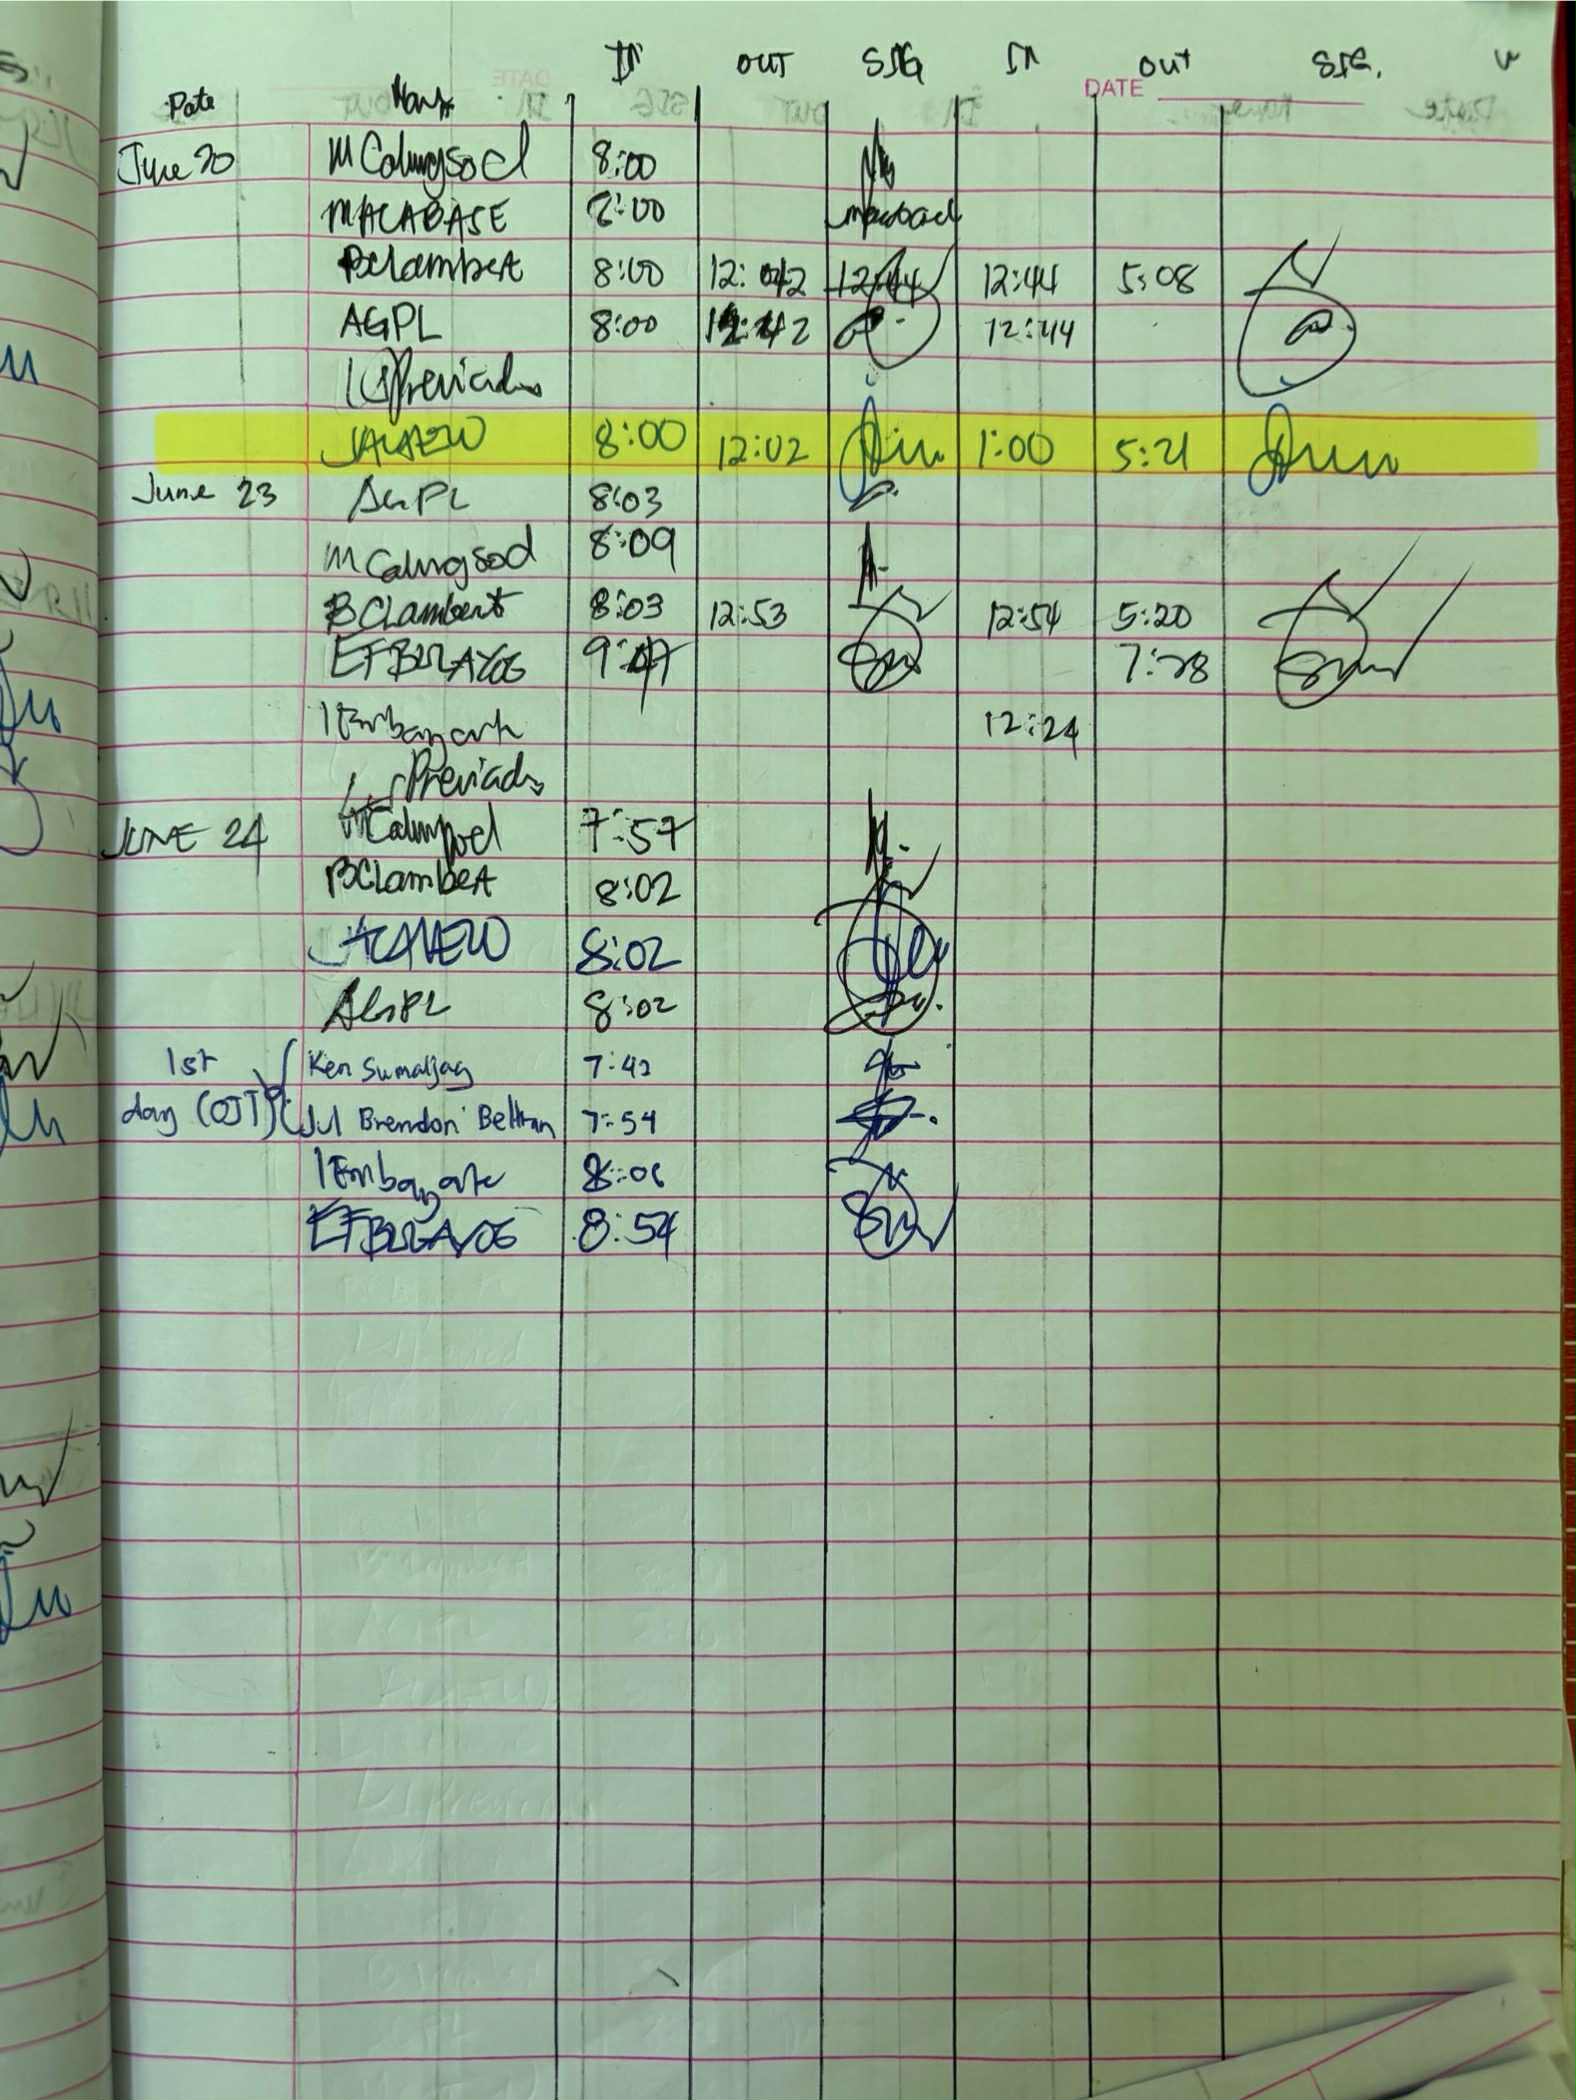 IN OUT SIG IN OUT SIG.
DATE
Date Name
June 20 M Calungsod 8:00
MACABASE 8:00
BCLambert 8:00 12:42 12:44 12:44 5:08
AGPL 8:00 12:42 12:44
Previado
8:00 12:02 1:00 5:21
June 23 AGPL 8:03
M Calungsod 8:09
BCLambert 8:03 12:53 12:54 5:20
EFBURAYOG 9:47 7:28
IEmbayarte 12:24
Previado
JUNE 24 MCalungsod 7:57
BCLambert 8:02
JACAVERO 8:02
AGPL 8:02
1st Ken Sumaljag 7:42
day (OJT) Jul Brendon Beltran 7:54
IEmbayarte 8:06
EFBURAYOG 8:54